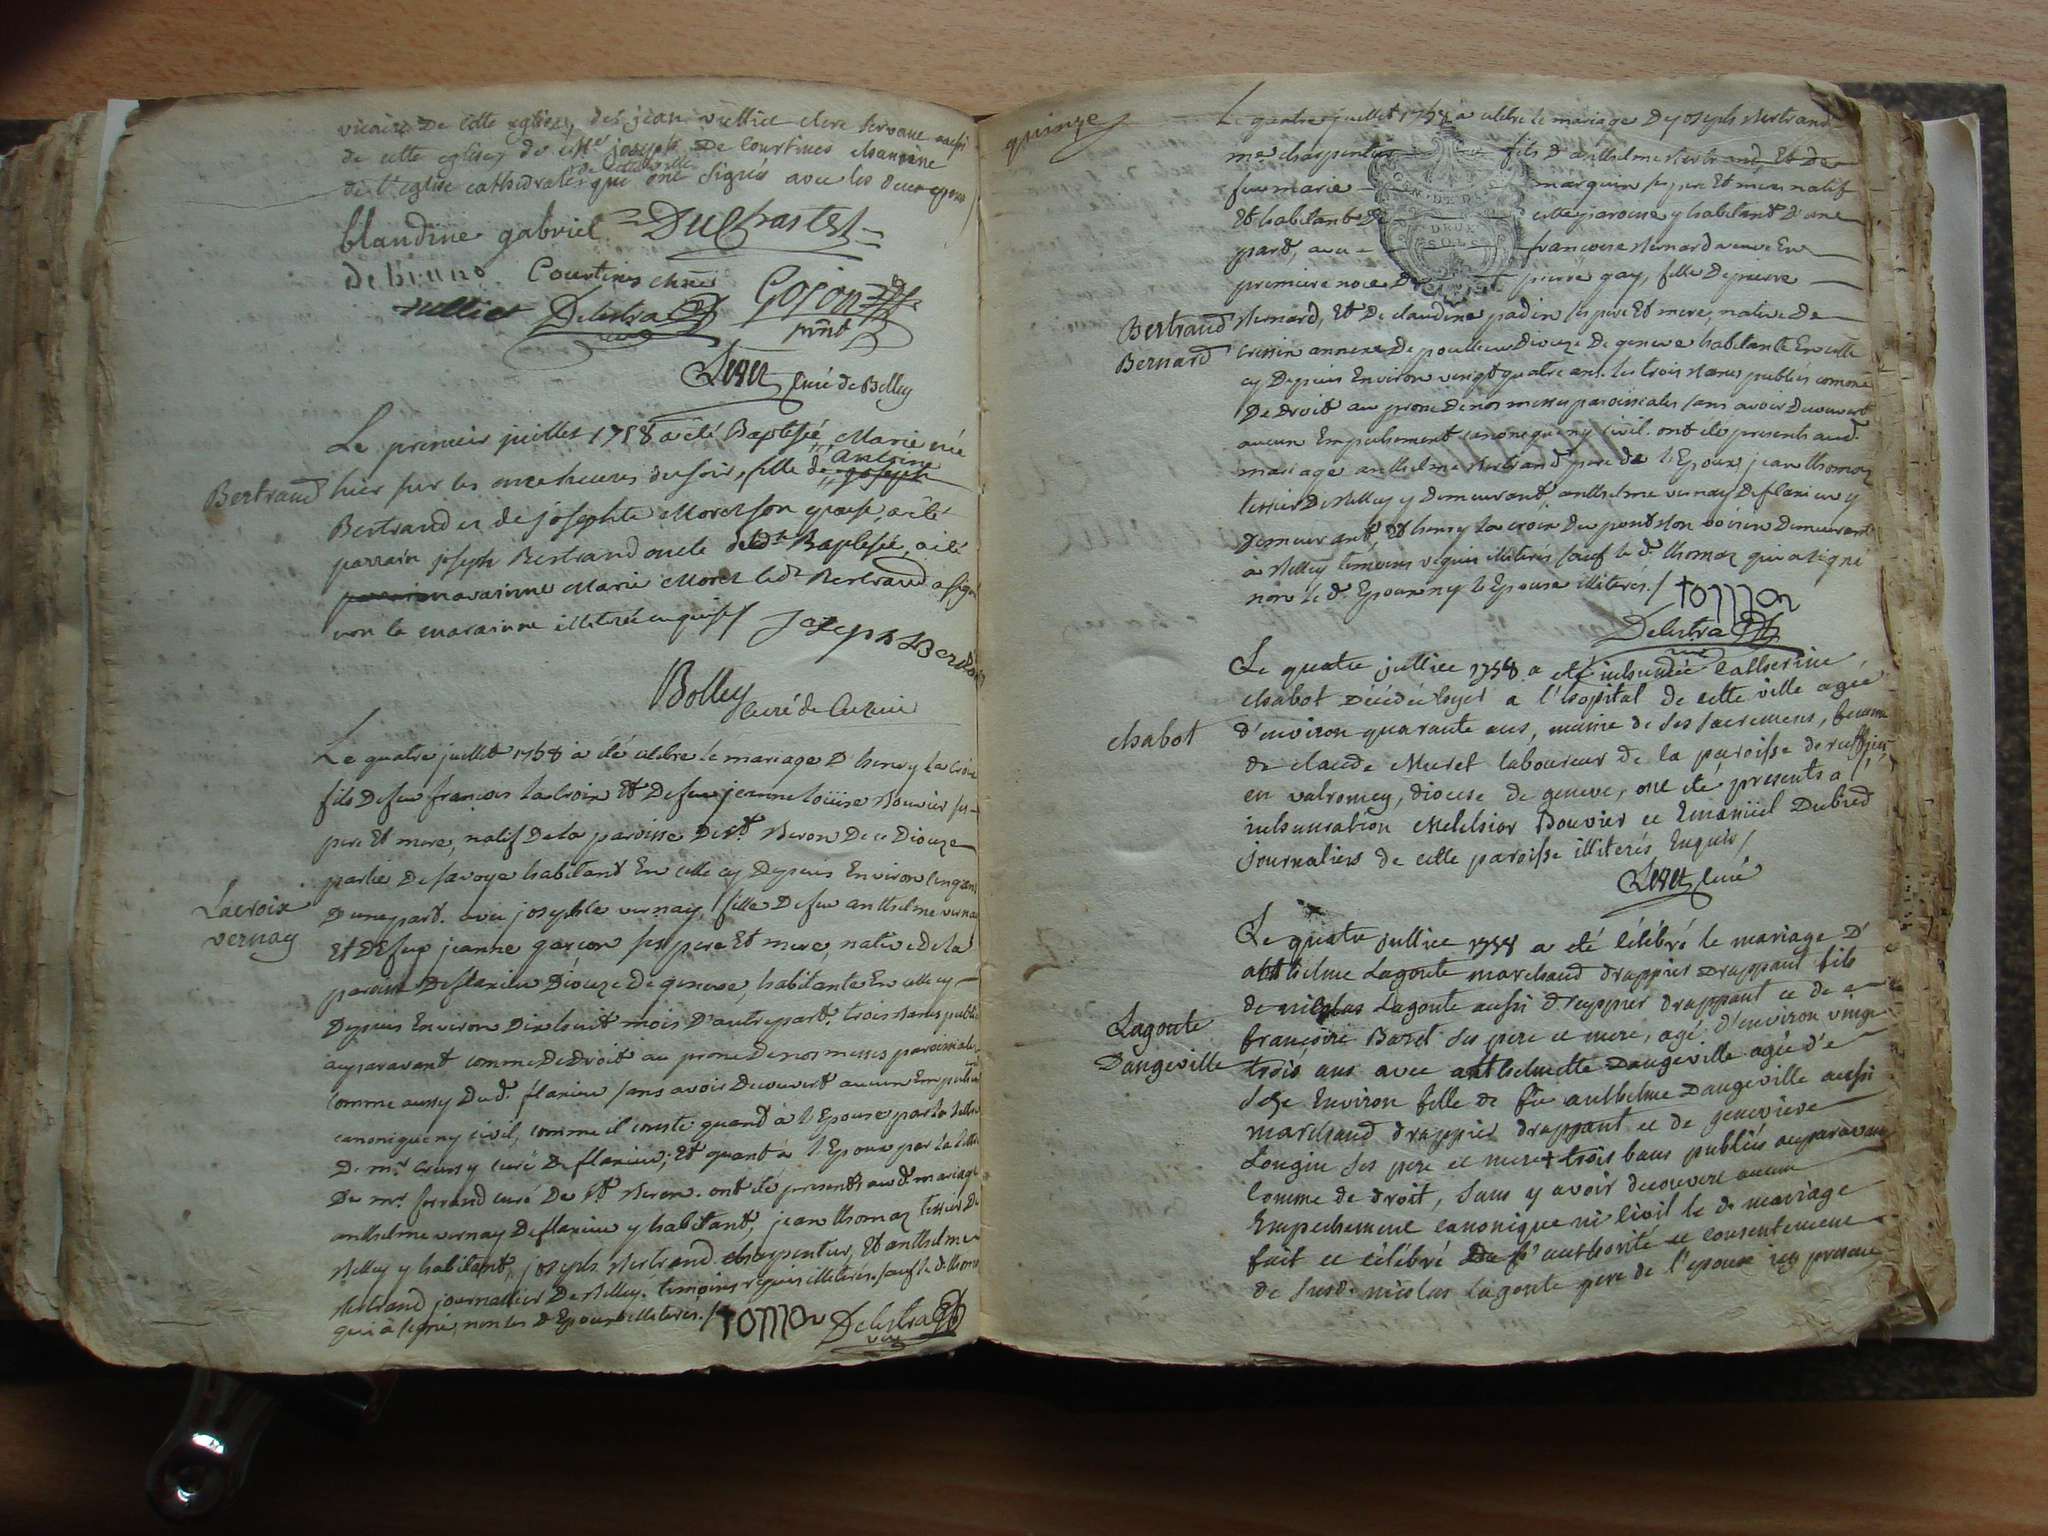 vicaire de cette eglise, de sr jean vulliet clerc servant aussi
de cette eglise, de Mre joseph De Courtines chanoine
de l'eglise cathedrale de cette ville qui ont signés avec les deux epoux
blandine gabriel DuChastel
de bruno Courtines chne Gojon
vulliet Delestra prnt
vic
curé de Belley
Le premier juillet 1758 a été Baptisée Marie née
Bertrand
hier sur les onze heures du soir, fille de antoine joseph
Bertrand et de josephte Moret son epouse, a été
parrain joseph Bertrand oncle de la dte Baptisée, a été
maraine Marie Moret led Bertrand a signé
non la maraine illiterée enquise / Joseph Bertrand
Bolley
curé de
Le quatre juillet 1758 a été celebre le mariage D henry la croix
fils De feu francois la croix Et De feu jeanne loüise Bouvier ses
pere Et mere, natif De la paroisse De St. Beron De ce Dioceze
partie De savoye habitant En celle cy Depuis Environ cinq ans
Lacroix
vernay
D'une part. avec josephte vernay, fille De feu anthelme vernay
Et De feu jeanne garcon ses pere Et mere, native De la
paroisse De flaxieu Dioceze De geneve, habitante En celle cy
Depuis Environ Dix huit mois D'autre part. trois bancs publiés
auparavant comme De Droit au prone De nos messes paroissiales
comme aussy Du d. flaxieu sans avoir Decouvert aucun Empechement
canonique ny civil, comme il conste quand à l'Epouse par la lettre
De mr. curé De flaxieu; Et quant à l'Epoux par la lettre
De mr. ferrand curé De St. Beron. ont été presents au d. mariage
anthelme vernay De flaxieu y habitant, jean thomaz tessier De
Belley y habitant, joseph Bertrand charpentier, Et anthelme
Bertrand journallier De Belley. temoins requis illiterés sauf le d. thomaz
qui a signé, non les d Epoux illiterés. / tomaz Delestra
vic
quinze
Le quatre juillet 1758 a celebre le mariage De joseph Bertrand
me charpentier fils D'anthelme Bertrand Et De
feue marie marquin ses pere Et mere natif
Et habitant De cette paroisse y habitant D'une
part, avec francoise Bernard veuve En
premiere noce De pierre gay, fille De pierre
GEN. DE
DEUX
SOLS
Bertrand
Bernard
Bernard, Et De claudine padin ses pere Et mere, native De
cressin annexe De pollieu Dioceze De geneve habitante En celle
cy Depuis Environ vingt quatre ans. les trois bancs publiés comme
De Droit au prone De nos messes paroissiales sans avoir Decouvert
aucun Empechement canonique ny civil. ont été presents aud.
mariage anthelme Bertrand pere De l'Epoux, jean thomaz
tessier De Belley y Demeurant, anthelme vernay De flaxieu y
Demeurant Et henry la croix Du pont Bon voisin Demeurant
a Belley temoins requis illiterés sauf le d. thomaz qui a signé
non le d. Epoux ny l'Epouse illiterés. / tomaz
Delestra
vic
Le quatre julliet 1758 a été inhumée Catherine
chabot Décédée hyer a l'hopital de cette ville agée
chabot
d'environ quarante ans, munie de ses sacremens, femme
de claude Muret laboureur de la paroisse de ruffieu
en valromey, diocese de geneve, ont été presents a l'
inhumation Melchior Bouvier et Emanüel Dubred
journaliers de cette paroisse illiterés Enquis /
curé
Le quatre julliet 1758 a été célébré le mariage D'
anthelme Lagoute marchand drappier drappant fils
de nicolas Lagoute aussi drappier drappant et de
Lagoute
Dangeville
françoise Barel ses pere et mere, agé d'environ vingt
trois ans avec anthelmette Dangeville agée de
seze Environ fille de fu anthelme Dangeville aussi
marchand drappier drappant et de genevieve
Longin ses pere et mere trois bans publiés auparavant
comme de droit, sans y avoir decouvert aucun
Empechement canonique ni civil le d. mariage
fait et célébré de l'authorité et consentement
de susd. nicolas Lagoute pere de l'epoux icy present